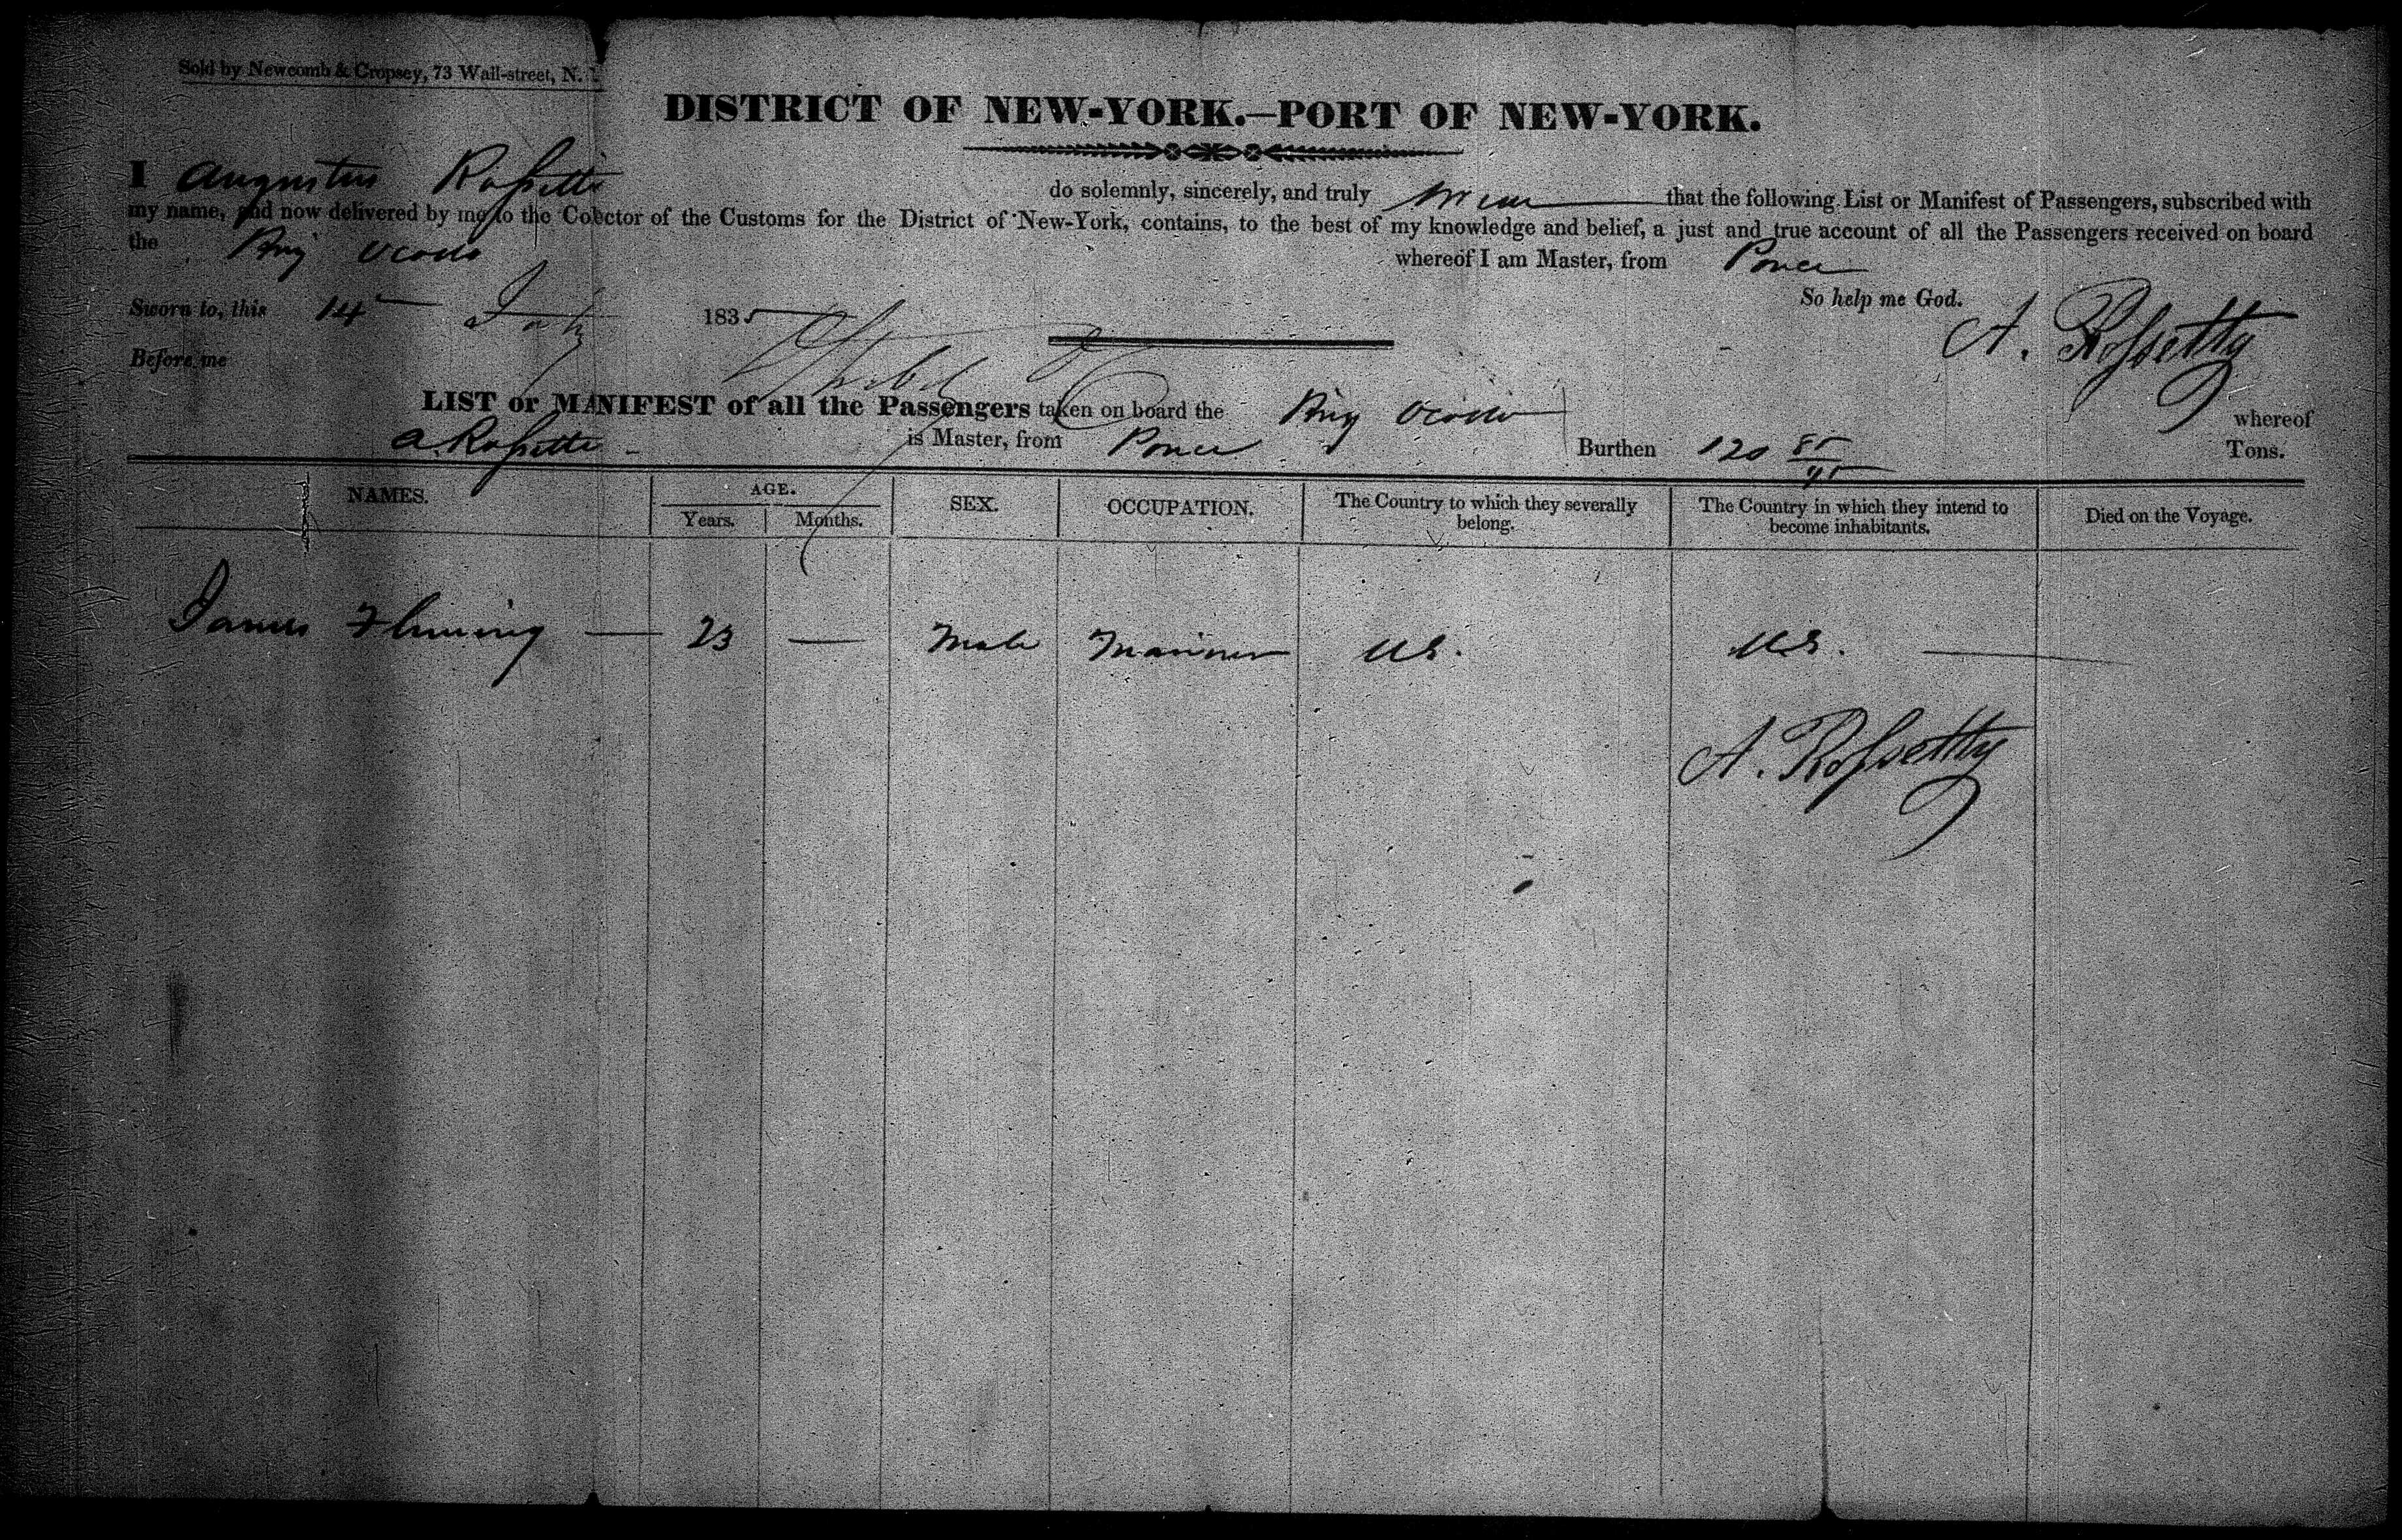 Sold by Newcomb & Cropsey, 73 Wall-street, N.
DISTRICT OF NEW-YORK.—PORT OF NEW-YORK.
I Augustus Rossetti do solemnly, sincerely, and truly swear that the following List or Manifest of Passengers, subscribed with
my name, and now delivered by me to the Collector of the Customs for the District of New-York, contains, to the best of my knowledge and belief, a just and true account of all the Passengers received on board
the Brig whereof I am Master, from Ponce
So help me God.
Sworn to, this 14 1835
A. Rossetty
Before me
LIST or MANIFEST of all the Passengers taken on board the Brig whereof
A. Rossetti is Master, from Ponce Burthen 120 85/95 Tons.
NAMES. AGE. Years. Months. SEX. OCCUPATION. The Country to which they severally belong. The Country in which they intend to become inhabitants. Died on the Voyage.
James Fleming — 23 — Male Mariner US. U.S. —
A. Rossetty